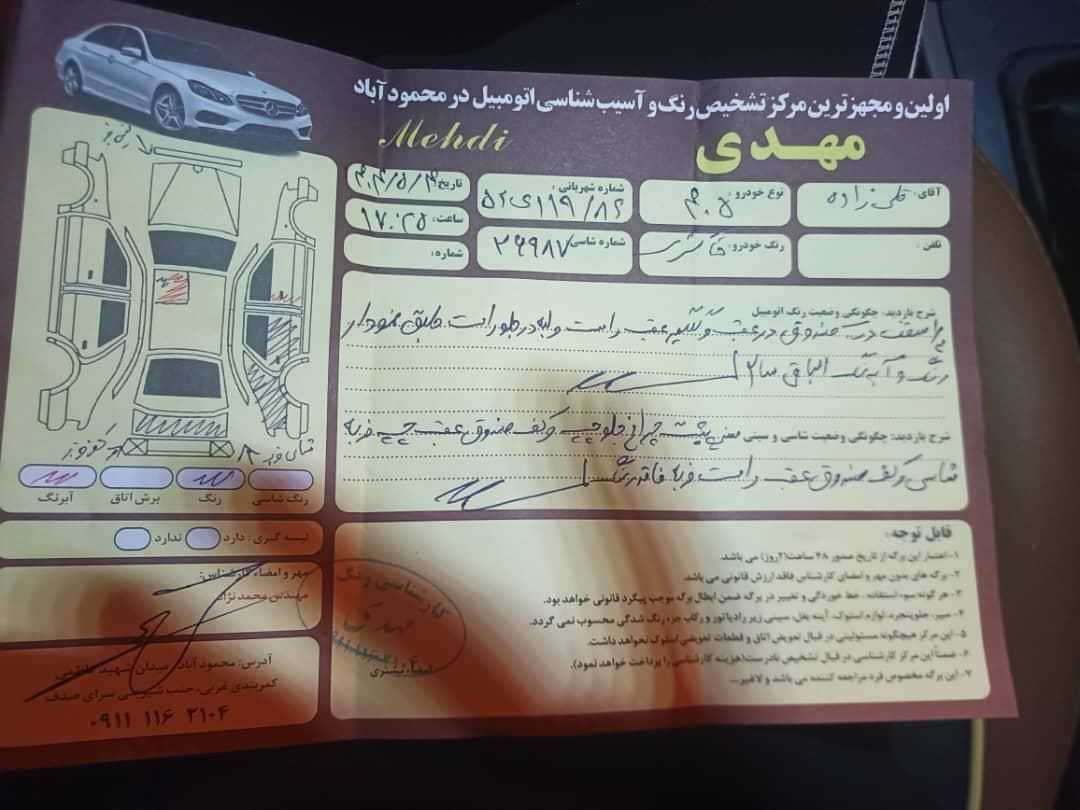 اولین و مجهزترین مرکز تشخیص رنگ و آسیب شناسی اتومبیل در محمودآباد
مهدی
Mehdi
آقای: قلی زاده
نوع خودرو: ۲۰۵
شماره شهربانی:
۵۲ی۱۱۹/۸۲
تاریخ: ۴۰۴/۵/۳
تلفن:
رنگ خودرو: خاکستری
شماره شاسی: ۲۶۹۸۷
ساعت: ۱۷:۲۵
شماره:
شرح بازدید: چگونگی وضعیت رنگ اتومبیل
درب صندوق درب عقب و گلگیر عقب راست
رنگ و آبرنگ
شرح بازدید: چگونگی وضعیت شاسی و سینی سینی پشت چراغ جلو چپ و کف صندوق عقب چپ ضربه
شاسی و کف صندوق عقب راست ضربه فاقد رنگ
رنگ شاسی
رنگ
برش اتاق
آبرنگ
لیسه گیری: دارد ندارد
مهر و امضاء کارشناس:
مهندس محمدنژاد
کارشناسی رنگ
مهدی
امضاء مشتری
آدرس: محمودآباد، میدان شهید
کمربندی غربی، جنب شیرینی سرای صدف
۰۹۱۱ ۱۱۶ ۲۱۰۴
قابل توجه:
۱- اعتبار این برگه از تاریخ صدور ۴۸ ساعت (۲روز) می باشد.
۲- برگه های بدون مهر و امضای کارشناس فاقد ارزش قانونی می باشد.
۳- هر گونه سوء استفاده، خط خوردگی و تغییر در برگه ضمن ابطال برگه موجب پیگرد قانونی خواهد بود.
۴- سپر، جلوپنجره، لوازم استوک، آینه بغل، سینی زیر رادیاتور و رکاب جزء رنگ شدگی محسوب نمی گردد.
۵- این مرکز هیچگونه مسئولیتی در قبال تعویض اتاق و قطعات تعویضی استوک نخواهد داشت.
۶- ضمناً این مرکز کارشناسی در قبال تشخیص نادرست (هزینه کارشناسی را پرداخت خواهد نمود).
۷- این برگه مخصوص فرد مراجعه کننده می باشد و لاغیر...